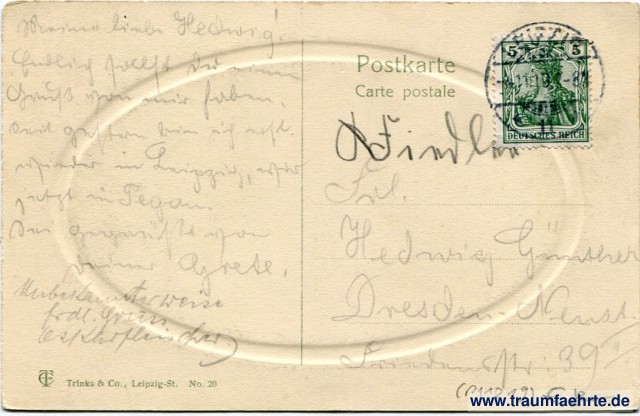 Meine liebe Hedwig!
Endlich sollst Du einen
Gruß von mir haben.
Seit gestern bin ich erst
wieder in Leipzig, war
jetzt in Pegau.
Sei gegrüßt von
Deiner Grete.
Unbekannterweise
frdl. Gruss
Postkarte
Carte postale
Fiedler
5 5
DEUTSCHES REICH
LEIPZIG
11
Frl.
Hedwig Günther
Dresden-Neust.
Friedensstr. 39
TC Trinks & Co., Leipzig-St. No. 20
www.traumfaehrte.de